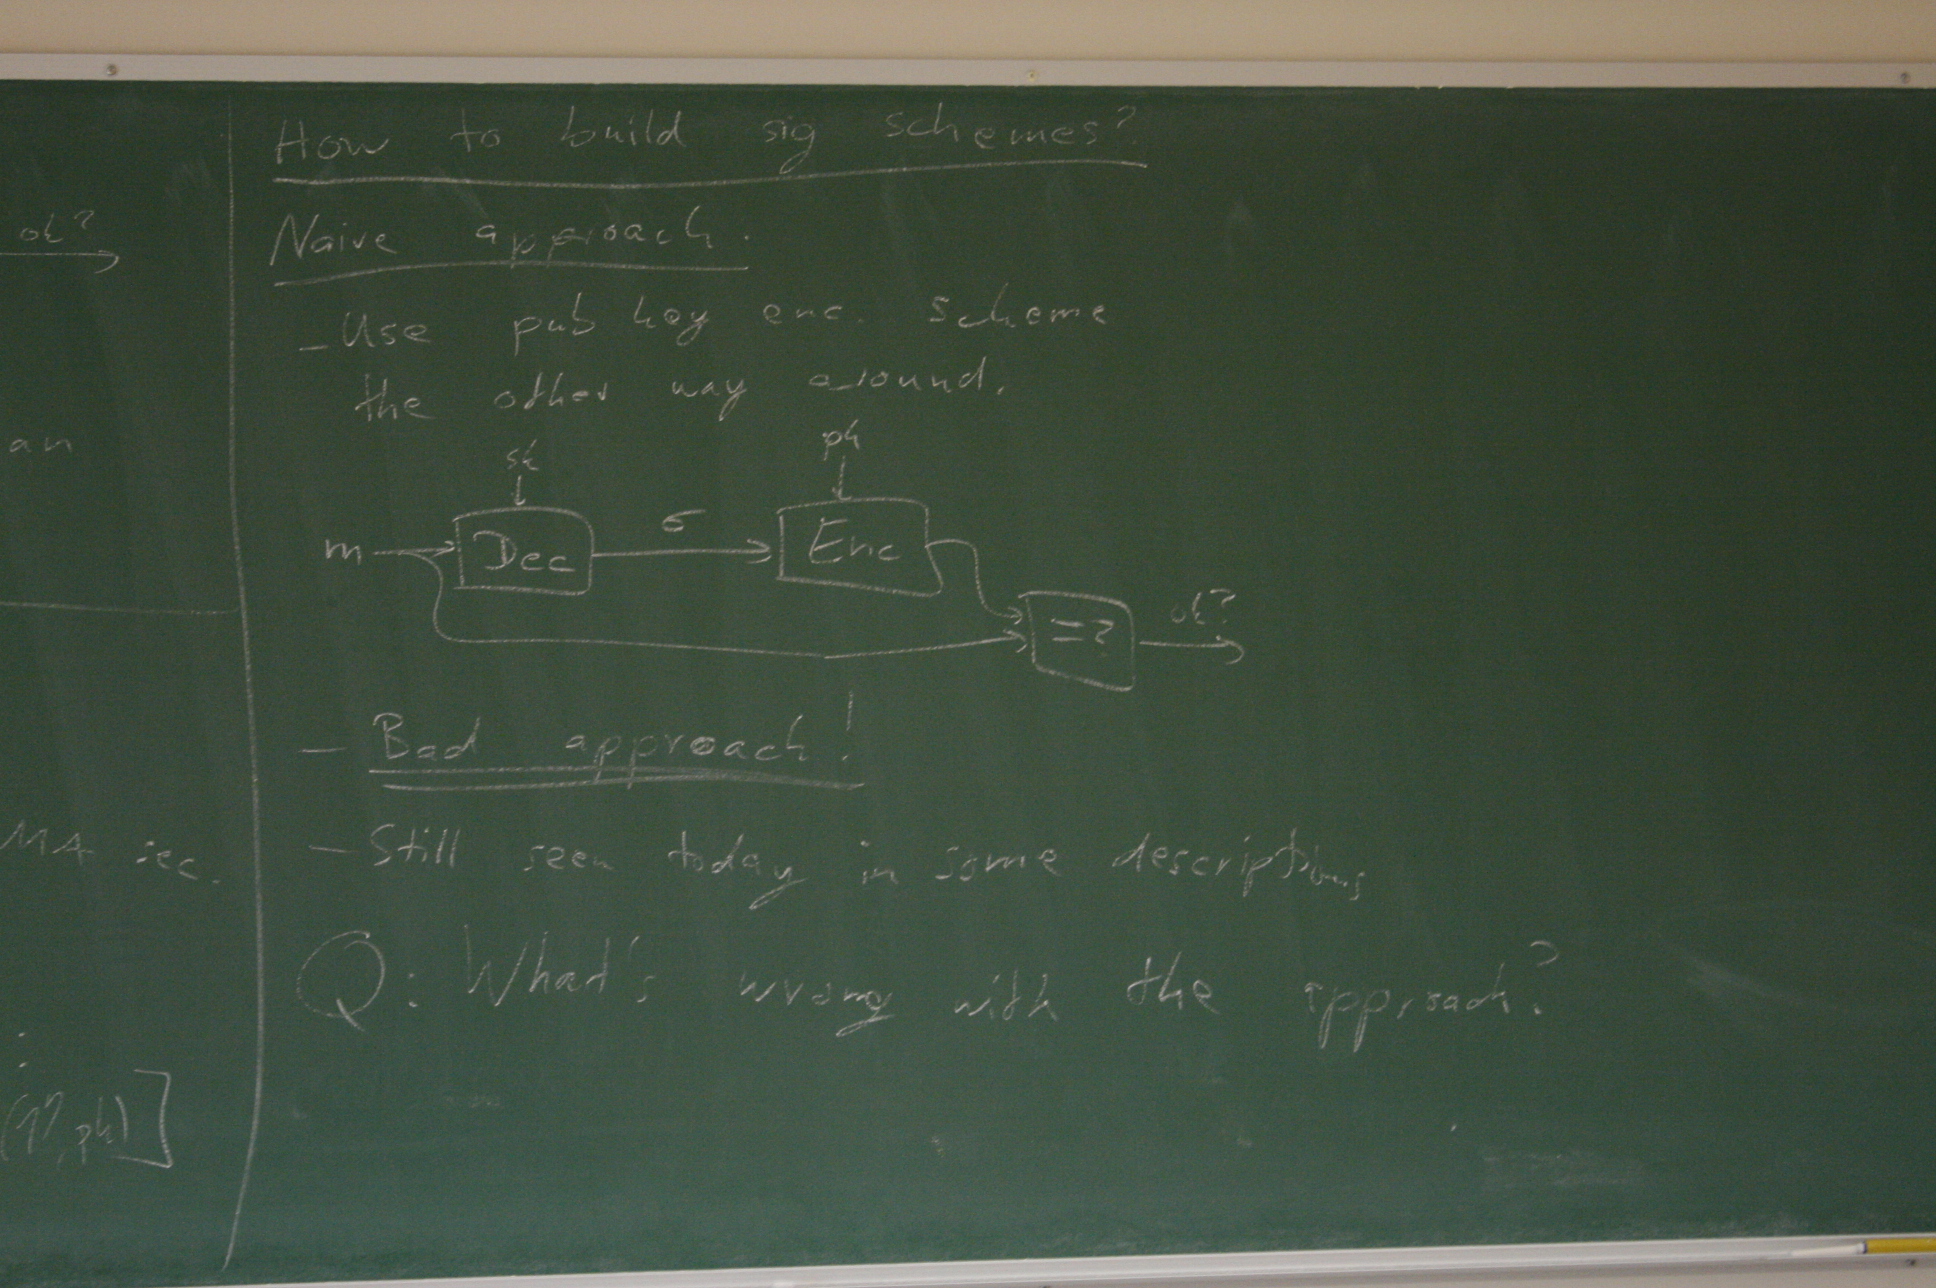 ok?
an
MA sec.
(1^η, pk)]
How to build sig schemes?
Naive approach.
- Use pub key enc. scheme
the other way around.
sk pk
m Dec σ Enc
=? ok?
- Bad approach!
- Still seen today in some descriptions
Q: What's wrong with the approach?